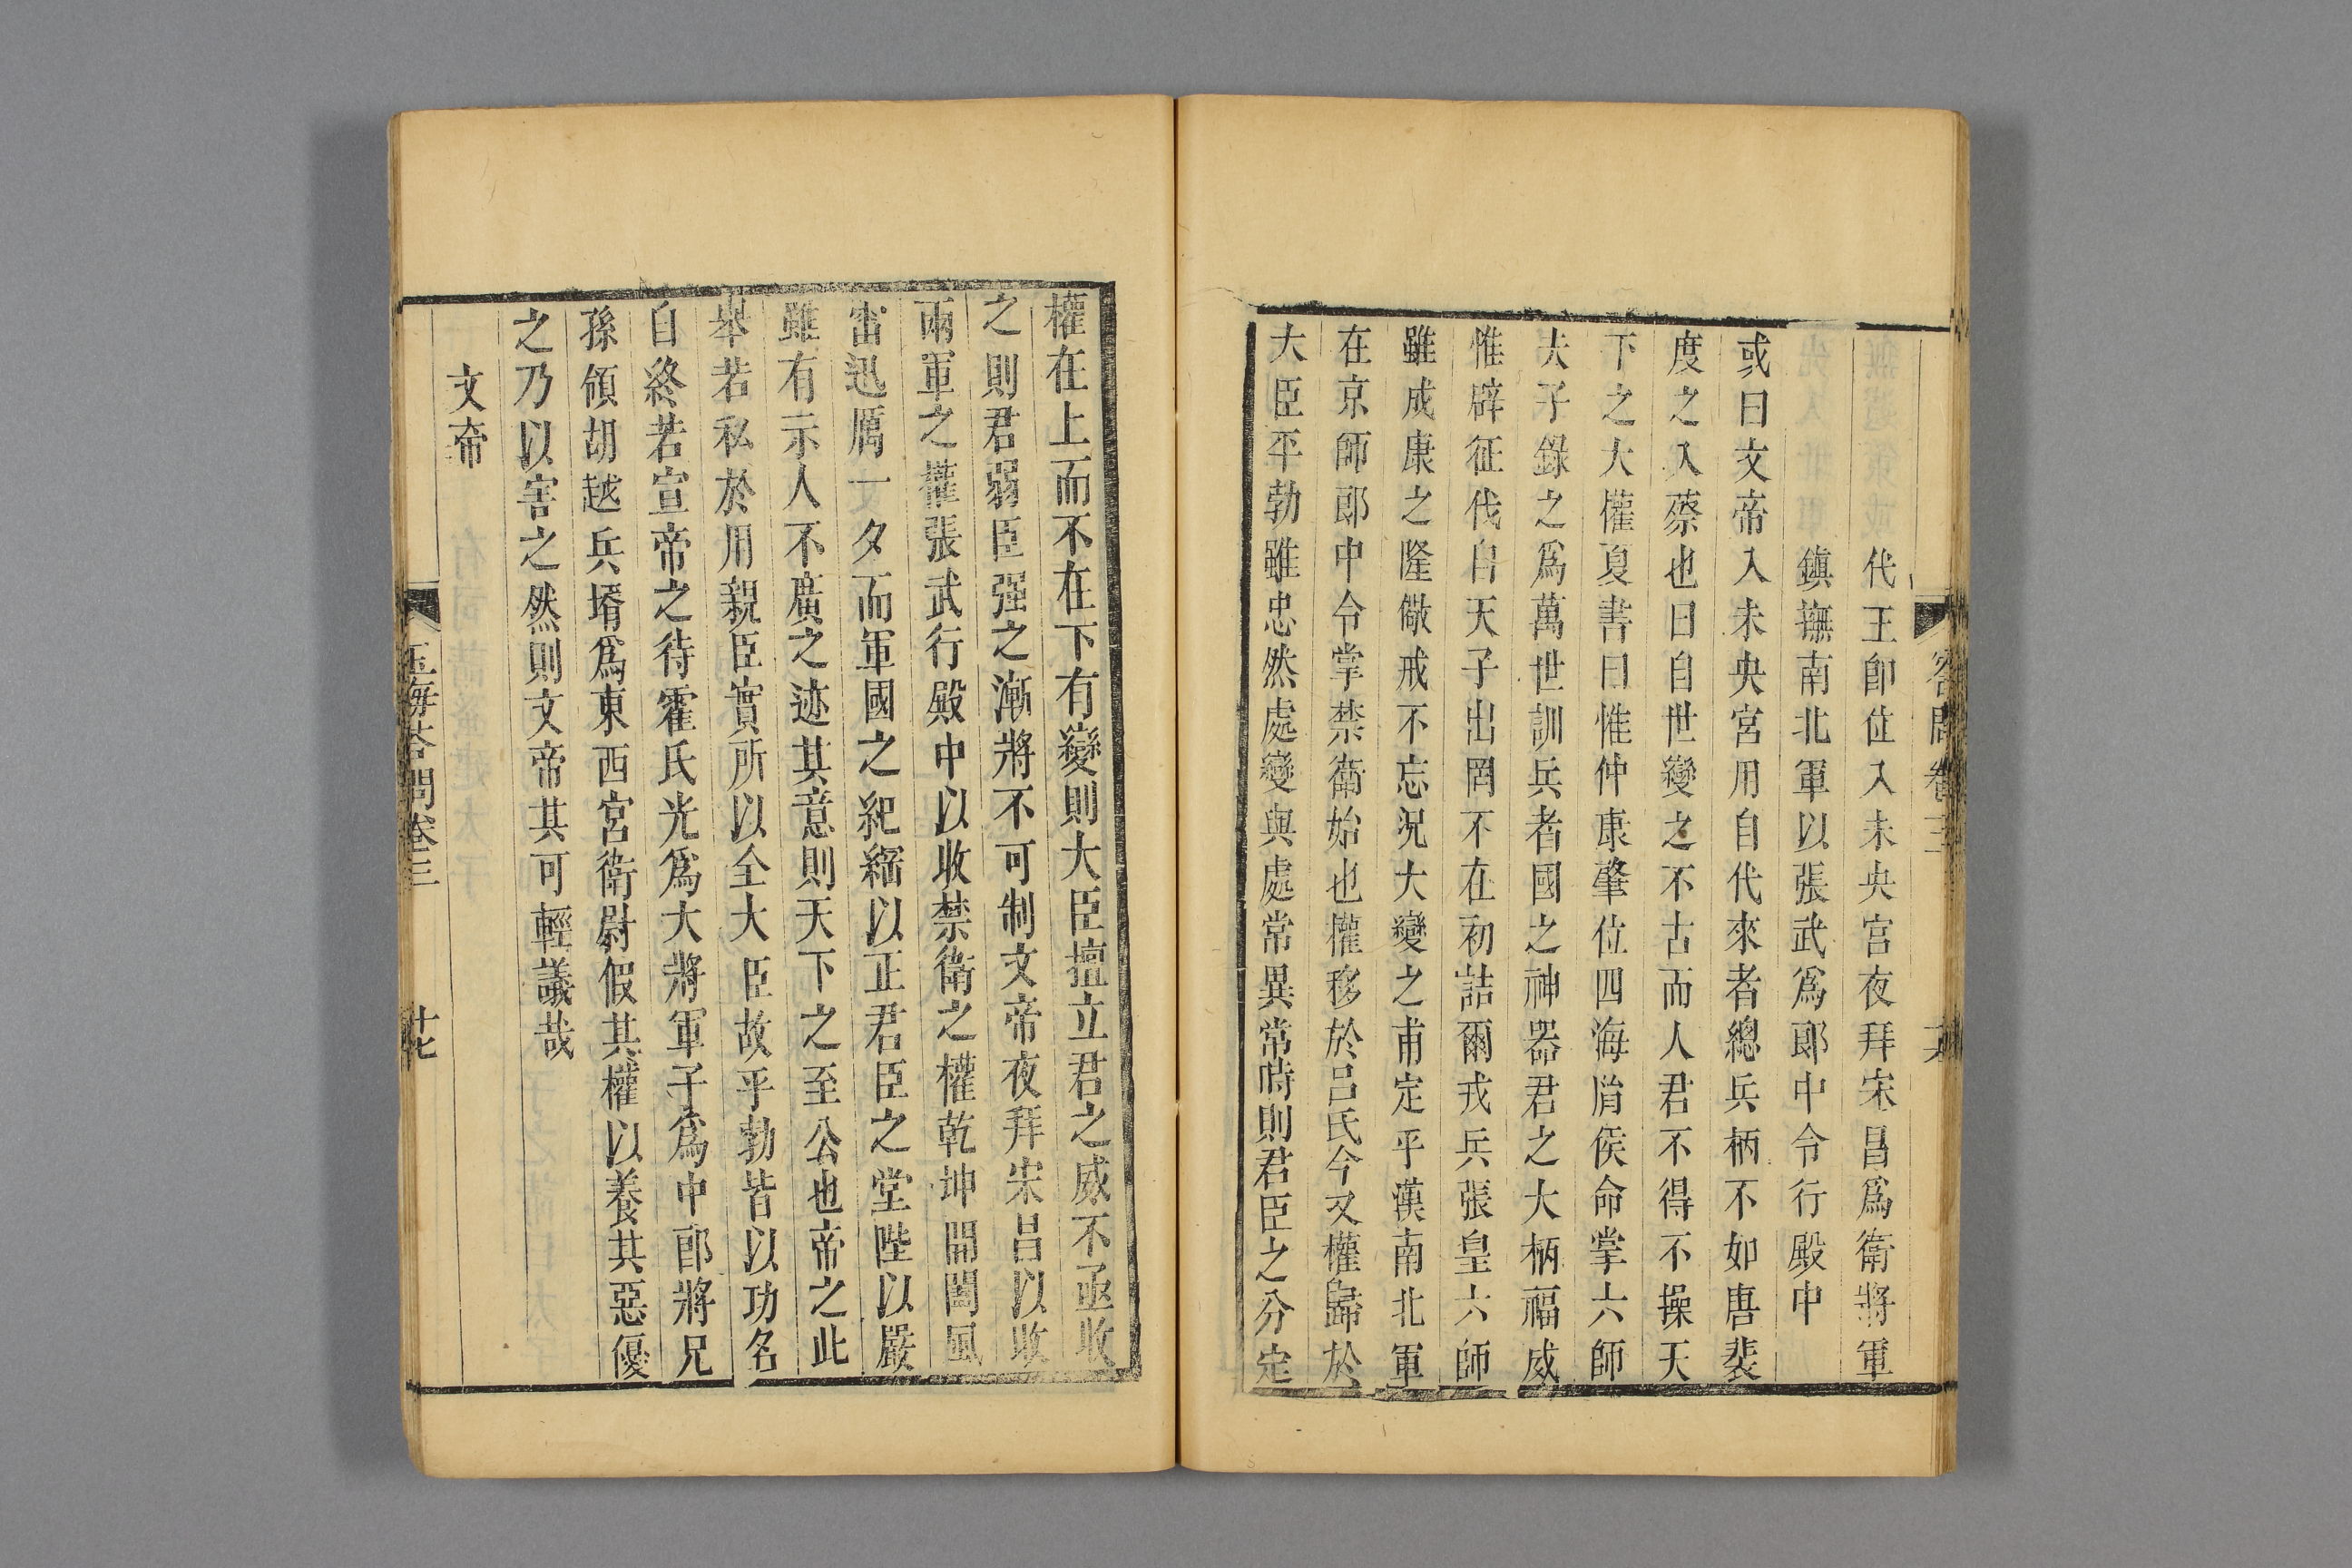 代王卽位入未央宮夜拜宋昌爲衛將軍
鎮撫南北軍以張武爲郞中令行殿中
或曰文帝入未央宮用自代來者總兵柄不如唐裴
度之入蔡也曰自世變之不古而人君不得不操天
下之大權夏書曰惟仲康肇位四海胤侯命掌六師
夫子錄之爲萬世訓兵者國之神器君之大柄福威
惟辟征伐自天子出罔不在初詰爾戎兵張皇六師
雖成康之隆儆戒不忘況大變之甫定乎漢南北軍
在京師郞中令掌禁衛始也權移於呂氏今又權歸於
大臣平勃雖忠然處變與處常異常時則君臣之分定
權在上而不在下有變則大臣擅立君之威不亟收
之則君弱臣强之漸將不可制文帝夜拜宋昌以收
兩軍之權張武行殿中以收禁衛之權乾坤開闔風
雷迅厲一夕而軍國之紀綱以正君臣之堂陛以嚴
雖有示人不廣之迹其意則天下之至公也帝之此
舉若私於用親臣實所以全大臣故平勃皆以功名
自終若宣帝之待霍氏光爲大將軍子爲中郞將兄
孫領胡越兵壻爲東西宮衛尉假其權以養其惡優
之乃以害之然則文帝其可輕議哉
文帝
玉海荅問卷三
十七